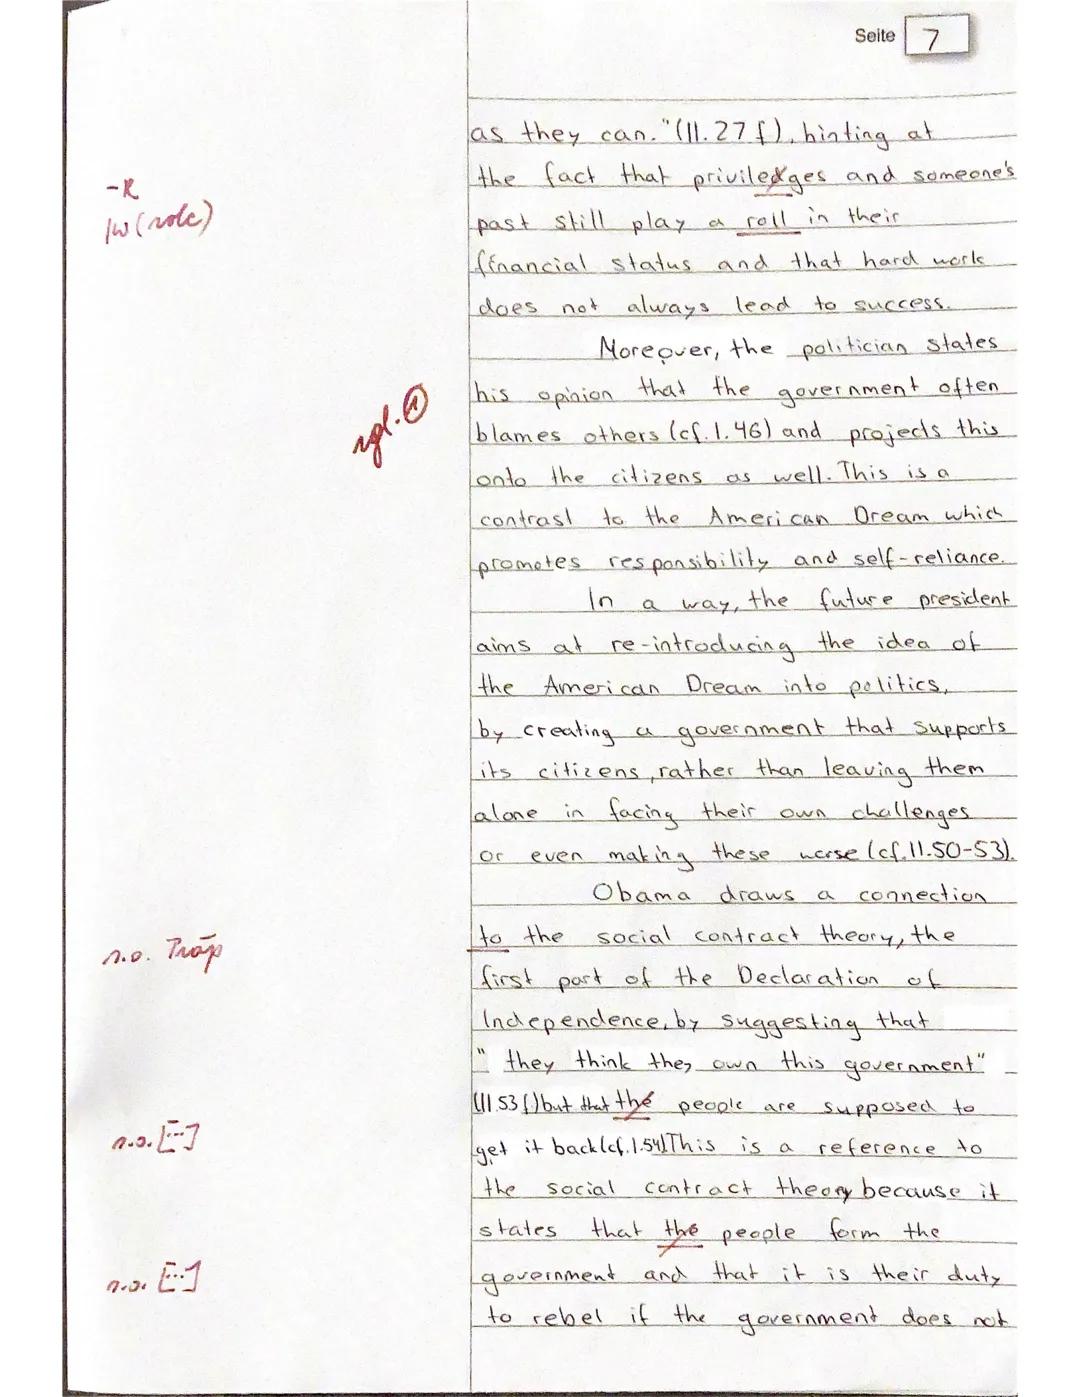 Seite 7
as they can." (ll. 27 f), hinting at
the fact that priviledges and someone's
-R
past still play a roll in their
lw (role)
financial status and that hard work
does not always lead to success.
Moreover, the politician states
his opinion that the government often
vgl. ①
blames others (cf. l. 46) and projects this
onto the citizens as well. This is a
contrast to the American Dream which
promotes responsibility and self-reliance.
In a way, the future president
aims at re-introducing the idea of
the American Dream into politics,
by creating a government that supports
its citizens, rather than leaving them
alone in facing their own challenges
or even making these worse (cf. ll. 50-53).
Obama draws a connection
to the social contract theory, the
n.o. Präp
first part of the Declaration of
Independence, by suggesting that
"they think they own this government"
(ll. 53 f) but that the people are supposed to
n.o. [---]
get it back (cf. l. 54) This is a reference to
the social contract theory because it
states that the people form the
n.o. [---]
government and that it is their duty
to rebel if the government does not